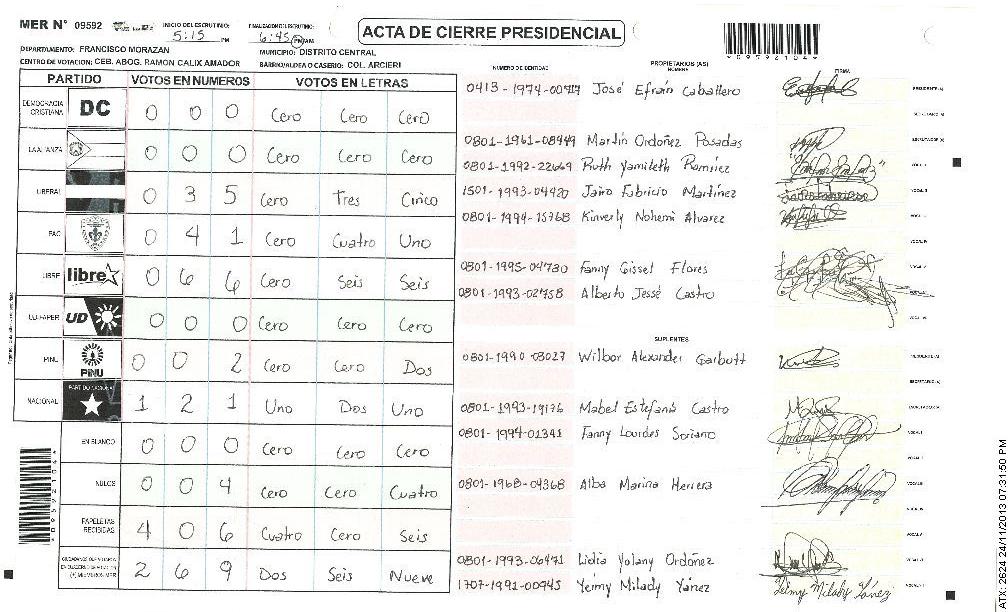 MER N° 09592
INICIO DEL ESCRUTINIO: 5:15 PM
FINALIZACION DEL ESCRUTINIO: 6:45 PM/AM
ACTA DE CIERRE PRESIDENCIAL
*09592104*
DEPARTAMENTO: FRANCISCO MORAZAN
MUNICIPIO: DISTRITO CENTRAL
CENTRO DE VOTACION: CEB. ABOG. RAMON CALIX AMADOR
BARRIO/ALDEA O CASERIO: COL. ARCIERI
PARTIDO VOTOS EN NUMEROS VOTOS EN LETRAS
DEMOCRACIA CRISTIANA DC 0 0 0 Cero Cero Cero
LA ALIANZA 0 0 0 Cero Cero Cero
LIBERAL 0 3 5 Cero Tres Cinco
PAC 0 4 1 Cero Cuatro Uno
LIBRE libre 0 6 6 Cero Seis Seis
UD-FAPER UD 0 0 0 Cero Cero Cero
PINU PINU 0 0 2 Cero Cero Dos
NACIONAL PARTIDO NACIONAL 1 2 1 Uno Dos Uno
EN BLANCO 0 0 0 Cero Cero Cero
NULOS 0 0 4 Cero Cero Cuatro
PAPELETAS RECIBIDAS 4 0 6 Cuatro Cero Seis
(+) MIEMBROS MER 2 6 9 Dos Seis Nueve
*09592104*
NUMERO DE IDENTIDAD
PROPIETARIOS (AS)
NOMBRE
FIRMA
José Efraín Caballero PRESIDENTE (A)
SECRETARIO (A)
0801-1961-08449 Martín Ordoñez Posadas ESCRUTADOR (A)
0801-1992-22669 Ruth Yamileth Ramírez VOCAL I
1501-1993-04920 Jairo Fabricio Martínez VOCAL II
0801-1994-15768 Kinverly Nohemi Alvarez VOCAL III
VOCAL IV
0801-1995-04730 Fanny Gissel Flores VOCAL V
0801-1993-02758 Alberto Jessé Castro VOCAL VI
VOCAL VII
SUPLENTES
0801-1990-03027 Wilbor Alexander Garbutt PRESIDENTE (A)
SECRETARIO (A)
0801-1993-19176 Mabel Estefanía Castro ESCRUTADOR (A)
0801-1994-01341 Fanny Lourdes Soriano VOCAL I
VOCAL II
0801-1968-04368 Alba Marina Herrera VOCAL III
VOCAL IV
VOCAL V
0801-1993-06471 Lidia Yolany Ordóñez VOCAL VI
1707-1991-00945 Yeimy Milady Yánez Yeimy Milady Yánez VOCAL VII
ATX: 2624 24/11/2013 07:31:50 PM